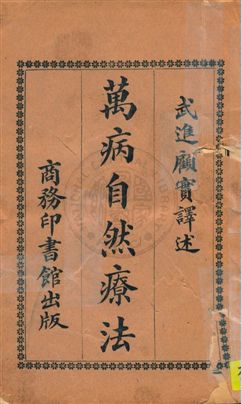 武進顧實譯述
萬病自然療法
商務印書館出版